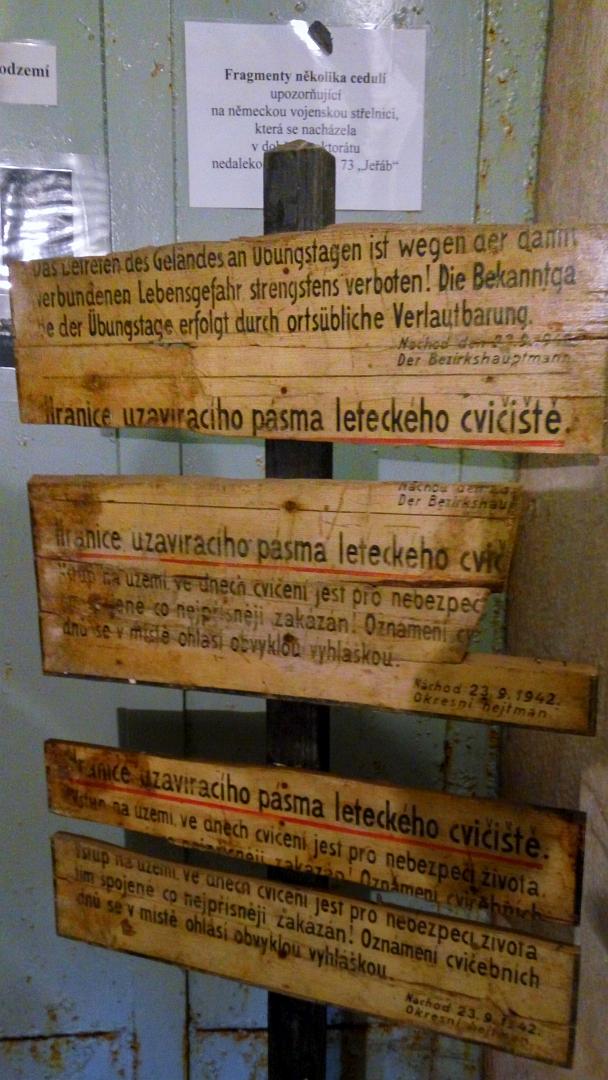 odzemí
Fragmenty několika cedulí
upozorňující
na německou vojenskou střelnici,
která se nacházela
v
nedaleko 73 „Jeřáb“
Das Betreten des Geländes an Übungstagen ist wegen der damit
verbundenen Lebensgefahr strengstens verboten! Die Bekanntga
be der Übungstage erfolgt durch ortsübliche Verlautbarung.
Nachod den 23.9.1942
Der Bezirkshauptmann
Hranice uzavíracího pásma leteckého cvičiště.
Nachod den
Der Bezirkshau
Hranice uzavíracího pásma leteckého cvič
Vstup na území ve dnech cvičení jest pro nebezpeč
spojené co nejpřísněji zakázán! Oznámení cvi
dnů se v místě ohlásí obvyklou vyhláškou.
Náchod 23.9.1942.
Okresní hejtman
Hranice uzavíracího pásma leteckého cvičiště.
Vstup na území ve dnech cvičení jest pro nebezpečí života
nejpřísněji zakázán! Oznámení cvičebních
Vstup na území ve dnech cvičení jest pro nebezpečí života
tím spojené co nejpřísněji zakázán! Oznámení cvičebních
dnů se v místě ohlásí obvyklou vyhláškou.
Náchod 23.9.1942.
Okresní hejtman